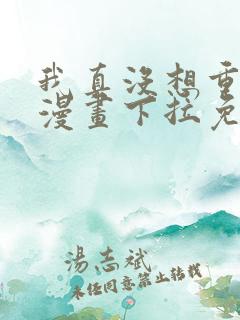 我真没想重
漫畫下拉免
湯志斌
未经同意禁止转载